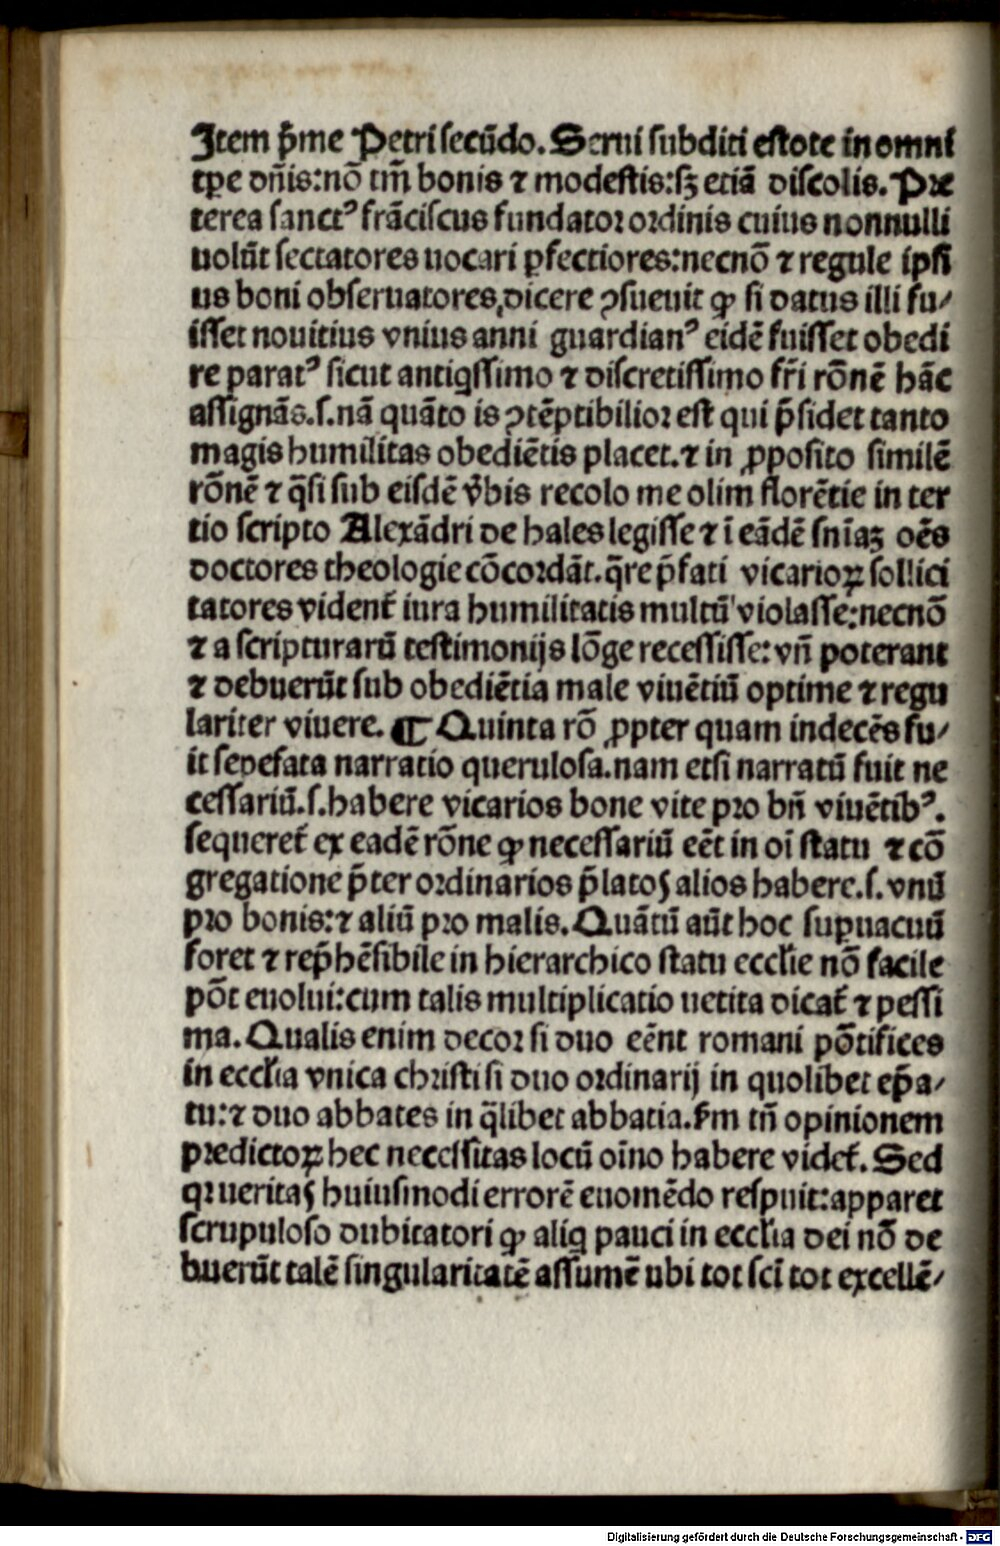 Item p̄me Petri secūdo. Serui subditi estote in omni
tp̄e dn̄is: nō tm̄ bonis ⁊ modestis: sꝫ etiā discolis. Pre
terea sanctꝰ frāciscus fundator ordinis cuius nonnulli
uolūt sectatores uocari ꝑfectiores: necnō ⁊ regule ipsi
us boni obseruatores, dicere ꝯsueuit ꝙ si datus illi fu/
isset nouitius vnius anni guardianꝰ eidē fuisset obedi
re paratꝰ sicut antiqssimo ⁊ discretissimo fr̄i rōnē hāc
assignās. s. nā quāto is ꝯtēptibilior est qui p̄sidet tanto
magis humilitas obediētis placet. ⁊ in ꝓposito similē
rōnē ⁊ q̄si sub eisdē v̄bis recolo me olim florētie in ter
tio scripto Alexādri de hales legisse ⁊ ī eādē sn̄iaꝫ oēs
doctores theologie cōcordāt. q̄re p̄fati vicarioꝝ sollici
tatores vident̄ iura humilitatis multū violasse: necnō
⁊ a scripturarū testimonijs lōge recessisse: vn̄ poterant
⁊ debuerūt sub obediētia male viuētiū optime ⁊ regu
lariter viuere. ¶ Quinta rō ꝓpter quam indecēs fu/
it sepefata narratio querulosa. nam etsi narratū fuit ne
cessariū. s. habere vicarios bone vite pro bn̄ viuētibꝰ.
sequeret̄ ex eadē rōne ꝙ necessariū eēt in oī statu ⁊ cō
gregatione p̄ter ordinarios p̄latos alios habere. s. vnū
pro bonis: ⁊ aliū pro malis. Quātū aūt hoc suꝑuacuū
foret ⁊ rep̄hēsibile in hierarchico statu eccl̄ie nō facile
pōt euolui: cum talis multiplicatio uetita dicat̄ ⁊ pessi
ma. Qualis enim decor si duo eēnt romani pōtifices
in eccl̄ia vnica christi si duo ordinarij in quolibet ep̄a/
tu: ⁊ duo abbates in q̄libet abbatia. s̄m tn̄ opinionem
predictoꝝ hec necessitas locū oīno habere videt̄. Sed
qꝛ ueritas huiusmodi errorē euomēdo respuit: apparet
scrupuloso dubitatori ꝙ aliq pauci in eccl̄ia dei nō de
buerūt talē singularitatē assumē ubi tot sci̅ tot excellē/
Digitalisierung gefördert durch die Deutsche Forschungsgemeinschaft - DFG